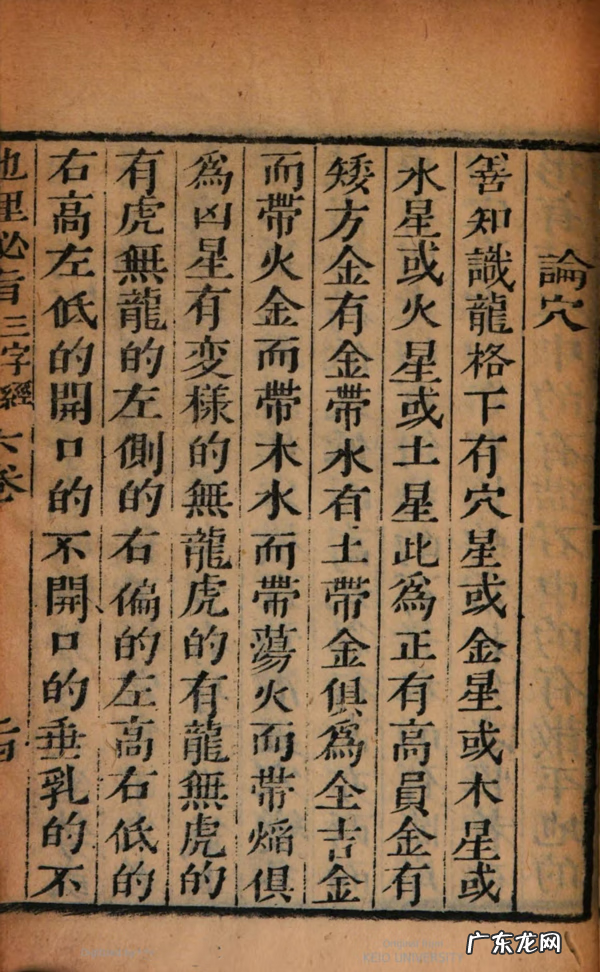 論穴
善知識龍格下有穴星或金星或木星或
水星或火星或土星此為正有高員金有
矮方金有金帶水有土帶金俱為全吉金
而帶火金而帶木水而帶蕩火而帶熖俱
為凶星有変様的無龍虎的有龍無虎的
有虎無龍的左側的右偏的左高右低的
右高左低的開口的不開口的垂乳的不
地里必旨三字經 六卷
KEIO UNIVERSITY
广东龙网